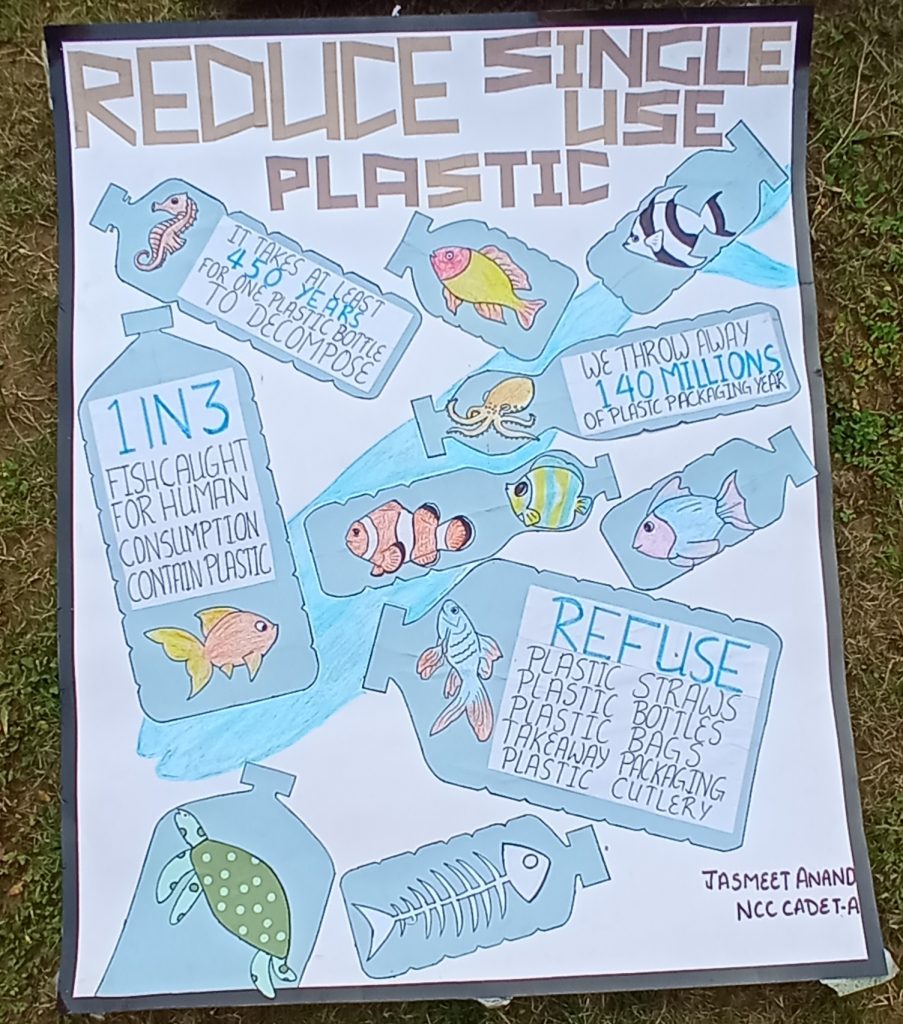 REDUCE SINGLE
USE
PLASTIC
IT TAKES AT LEAST
450 YEARS
FOR ONE PLASTIC BOTTLE
TO DECOMPOSE
WE THROW AWAY
140 MILLIONS
OF PLASTC PACKAGING YEAR
1 IN 3
FISH CAUGHT
FOR HUMAN
CONSUMPTION
CONTAIN PLASTIC
REFUSE
PLASTIC STRAWS
PLASTIC BOTTLES
PLASTIC BAGS
TAKEAWAY PACKAGING
PLASTIC CUTLERY
JASMEET ANAND
NCC CADET-A